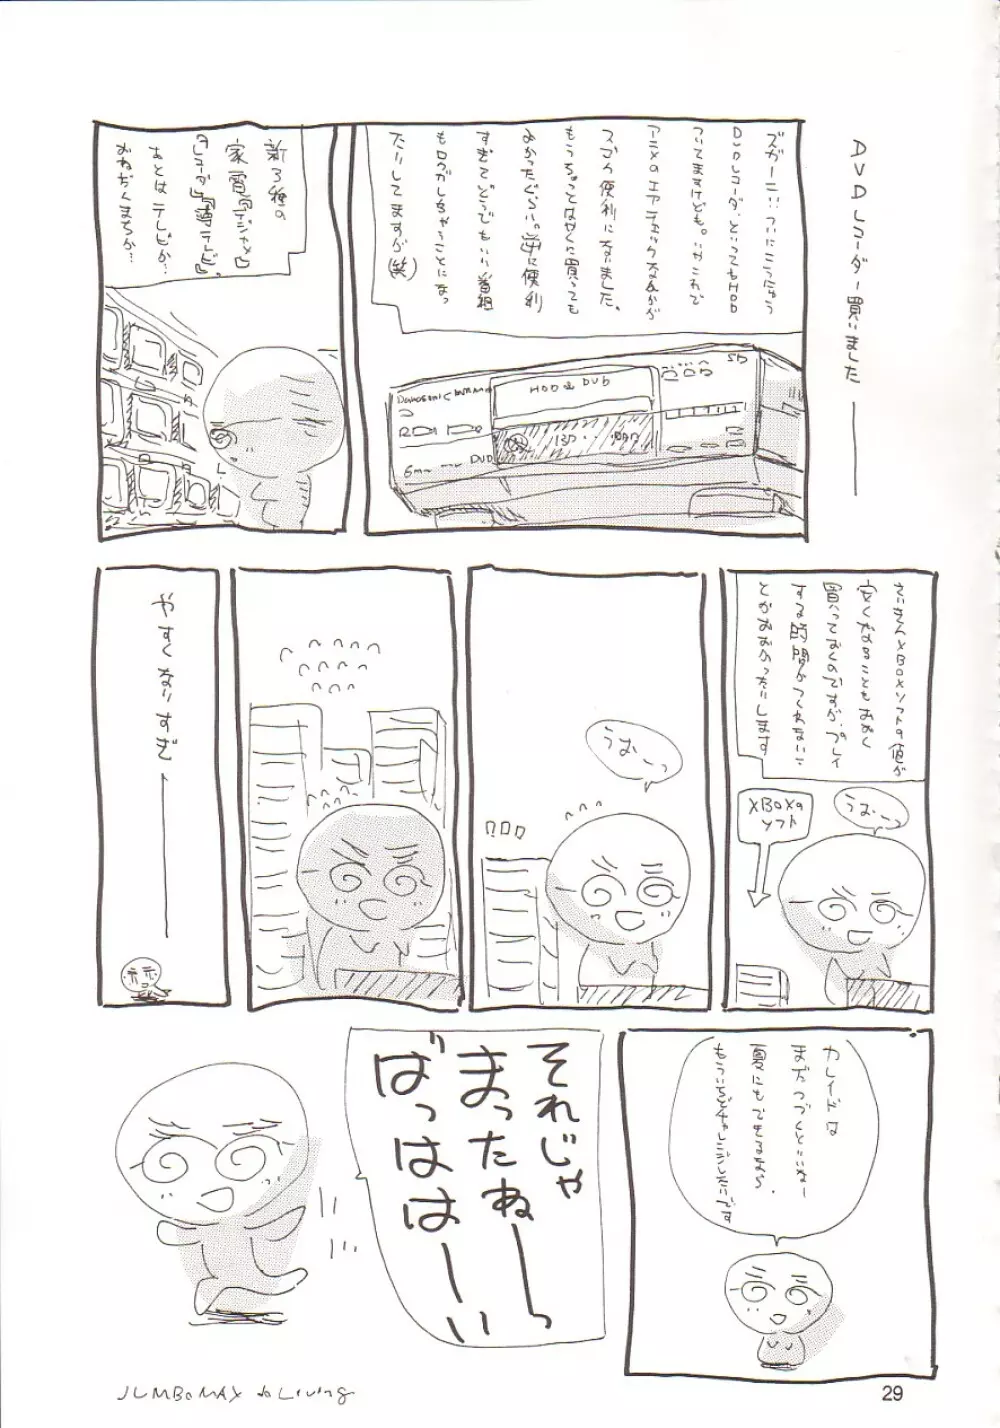 DVDレコーダー買いました――
ズガーン!!ついにこうにゅう
DVDレコーダ、といってもHDD
ついてますけども。いやこれで
アニメのエアチェックなんかが
スゴク便利になりました。
もうちょっとはやくに買っても
よかったぐらい。逆に便利
すぎてどうでもいい番組
もロクガしちゃうことになっ
たりしてますが(笑)
HDD & DVD
SD
DVD
新3種の
家電「デジカメ」
「レコーダ」「薄テレビ」。
あとはテレビか…
おねだんまちか…
さいきんXBOXソフトの値が
安くなることもおおく
買っておくのですが、プレイ
する時間がつくれないこ
とがおおかったりします
うおーっ
XBOXの
ソフト
うおーっ
やすくなりすぎ――
カレイドは
まだつづくといいねー
夏にもできるなら、
もういちどチャレンジしたいです
それじゃ
まったねーーっ
ばっははーーい
JUMBOMAX to Living
29